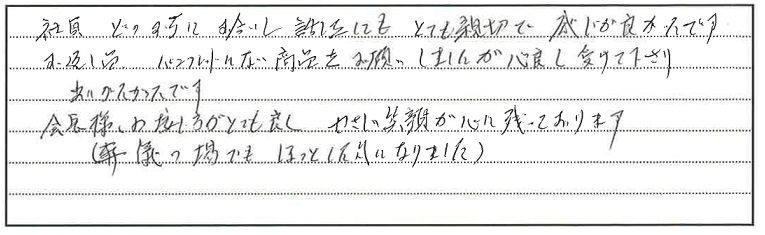 社員 どの方に お会いし 話をしても とても親切で 感じが良かったです
お返し品 パンフレットにない商品をお願いしましたが心良く受けて下さり
ありがたかったです
会長様のお人柄がとても良く やさしい笑顔が心に残っております
(葬儀の場でも ほっとした気になりました)